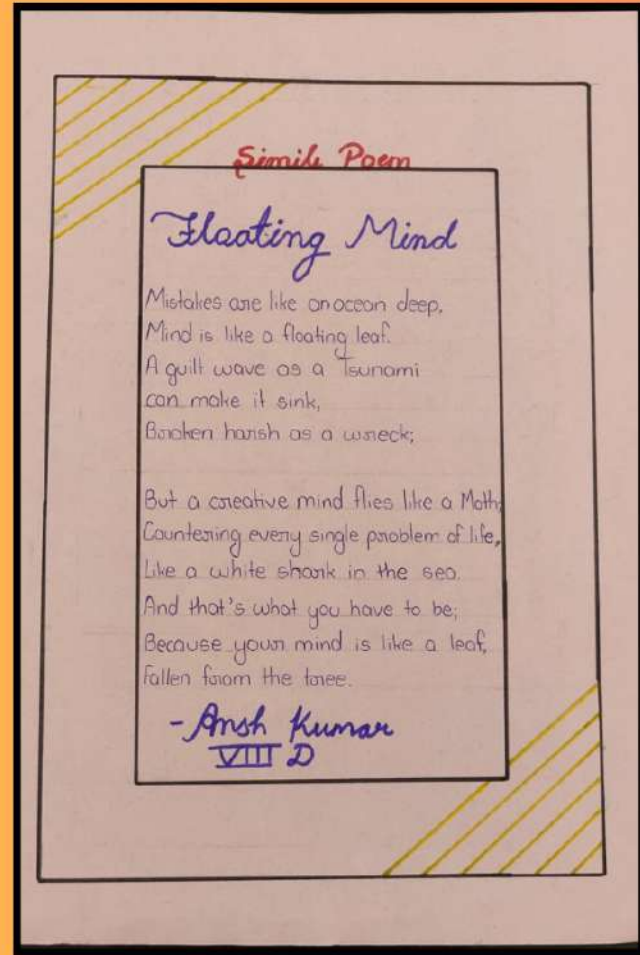 Simile Poem
Floating Mind
Mistakes are like an ocean deep,
Mind is like a floating leaf.
A guilt wave as a Tsunami
can make it sink,
Broken harsh as a wreck;
But a creative mind flies like a Moth;
Countering every single problem of life,
Like a white shark in the sea.
And that's what you have to be;
Because your mind is like a leaf,
Fallen from the tree.
- Ansh Kumar
VIII D